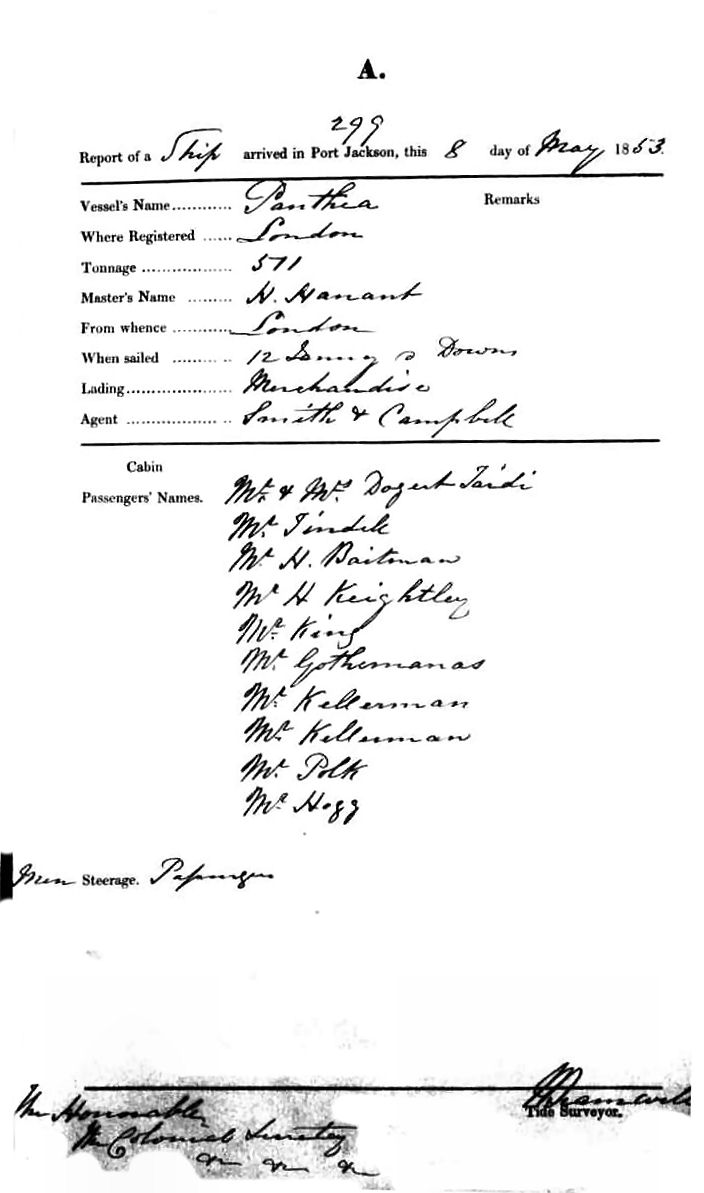 A.
299
Report of a Ship arrived in Port Jackson, this 8 day of May 1853.
Vessel's Name............ Panthea Remarks
Where Registered ...... London
Tonnage .................. 511
Master's Name ......... H. Hanant
From whence ............ London
When sailed ......... .. 12 Downs
Lading..................... Merchandise
Agent .................. .. Smith & Campbell
Cabin
Passengers' Names. Mr. & Mrs. Tardi
Mr. Tindell
Mr. H. Baitman
Mr H Keightley
Mr. King
Mr. Gothemanas
Mr. Kellerman
Mr. Kellerman
Mr. Polk
Mr. Hogg
Steerage. Passengers
Tide Surveyor.
The Honourable
The Colonial Secretary